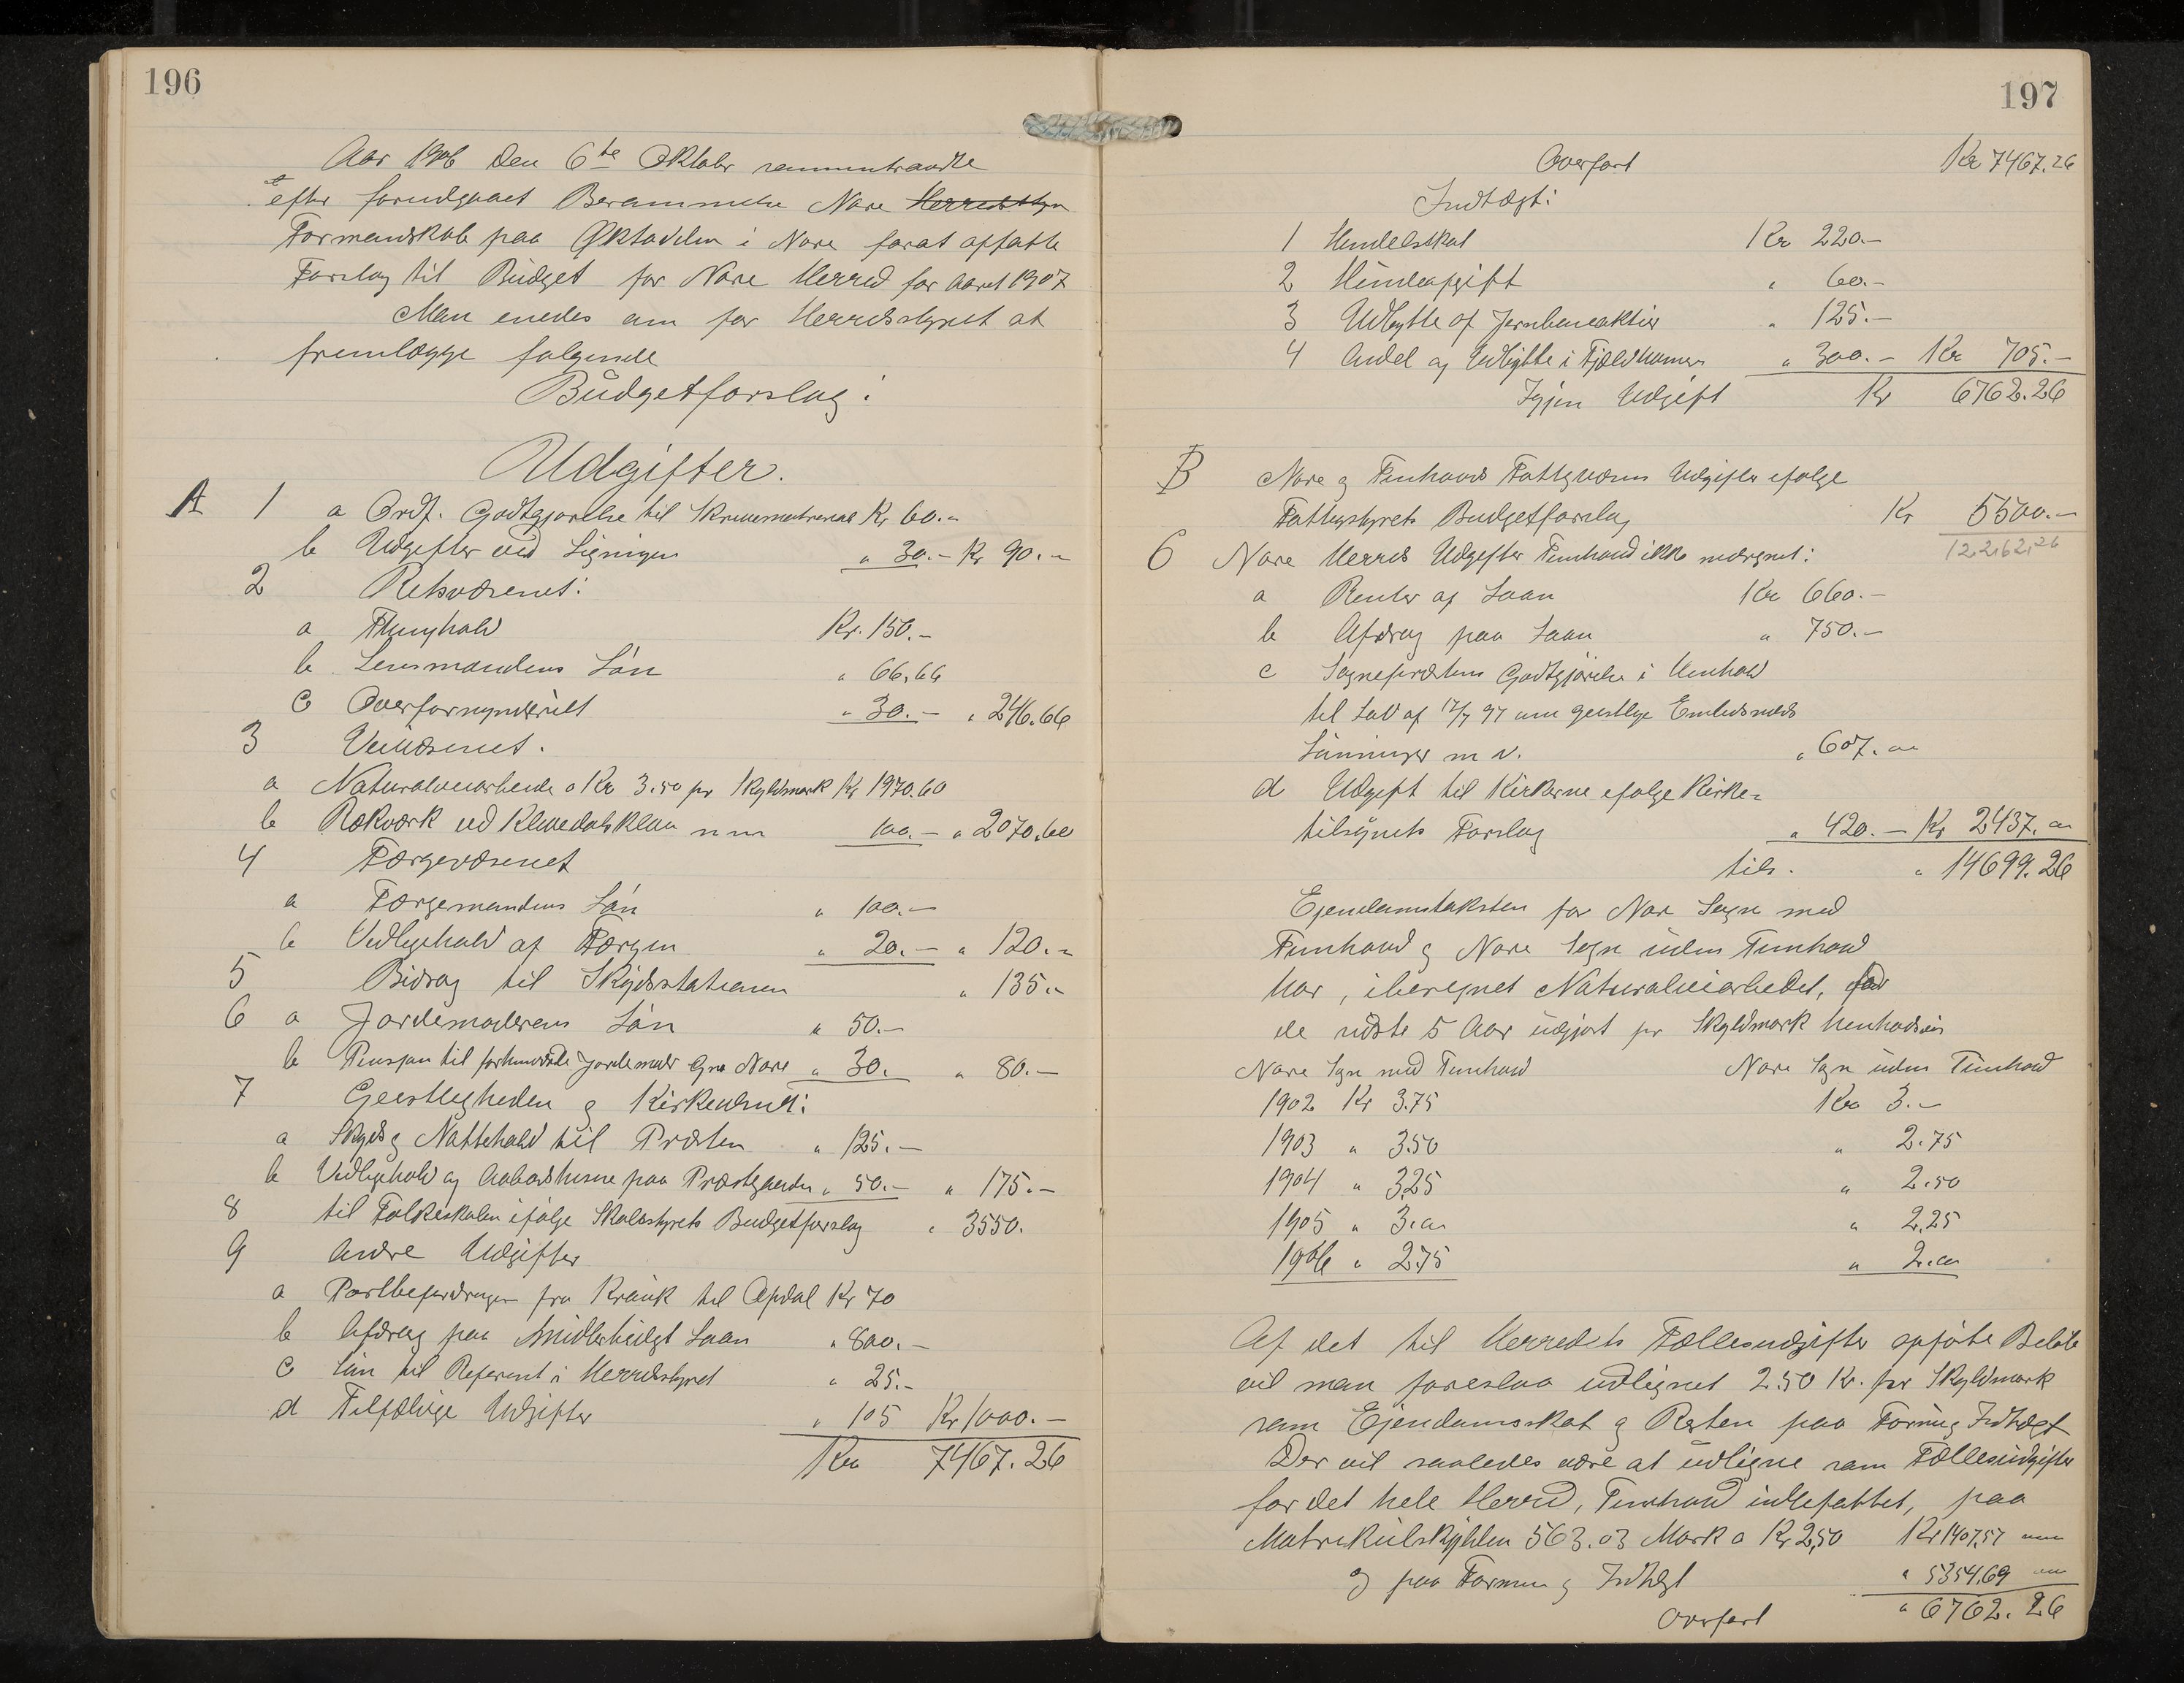 196
Aar 1906 den 6te Oktober sammentraadte
efter forudgaaet Berammelse Nore Herredsstyr
Formandskab paa Oktodelen i Nore forat opsætte
Forslag til Budget for Nore Herred for Aaret 1907
Man enedes om for Herredsstyret at
fremlægge følgende
Budgetforslag:
Udgifter.
A 1 a Ordf. Godtgjørelse til Skrivematerial Kr 60.-
b Udgifter ved Ligningen " 30.- Kr 90.-
2 Retsvæsenet:
a Thinghold Kr. 150.-
b Lensmandens Løn " 66,66
c Overformynderiet " 30.- " 246.66
3 Veivæsenet.
a Naturalveiarbeide a Kr 3.50 pr Skyldmark Kr 1970.60
b Rækværk ved m m 100.- " 2070.60
4 Færgevæsenet
a Færgemandens Løn " 100.-
b Vedligehold af Færgen " 20.- " 120.-
5 Bidrag til Skydsstationen " 135.-
6 a Jordemoderens Løn " 50.-
b Pensjon til forhenværende Jordemoder Nore " 30. " 80.-
7 Geistligheden og Kirkevæsenet:
a Skyds og Natteholds til Præsten " 125.-
b Vedligehold og Aabodshusene paa Præstegaarden " 50.- " 175.-
8 til Folkeskolen ifølge Skolestyrets Budgetforslag " 3550.
9 Andre Udgifter
a Postbefordringen fra til Opdal Kr 70
b Afdrag paa Midlertidigt Laan " 800.-
c Løn til Referent i Herredsstyret " 25.-
d Tilfældige Udgifter " 105 Kr 1000.-
Kr 7467.26
197
Overført Kr 7467.26
Indtægt:
1 Handelsskat Kr 220.-
2 Hundeafgift " 60.-
3 Udbytte af Jernbaneaktier " 125.-
4 Andel og Udbytte i " 300.- Kr 705.-
Igjen Udgift Kr 6762.26
B Nore og Tunhovds Fattigvæsens Udgifter ifølge
Fattigstyrets Budgetforslag Kr 5500.-
12262,26
6 Nore Herreds Udgifter Tunhovd ikke medregnet:
a Renter af Laan Kr 660.-
b Afdrag paa Laan " 750.-
c Sogneprestens Godtgjørelse i Henhold
til Lov af 17/7 97 om geistlige Embedsmænds
Lønninger m v. " 607.00
d Udgift til Kirkerne ifølge Kirke-
tilsynets Forslag " 420.- Kr 2437.00
tils. " 14699.26
Ejendomstaksten for Nore Sogn med
Tunhovd og Nore Sogn uden Tunhovd
har, iberegnet Naturalveiarbeidet, for
de sidste 5 Aar udgjort pr Skyldmark henholdsvis
Nore Sogn med Tunhovd Nore Sogn uden Tunhovd
1902 Kr 3.75 Kr 3.-
1903 " 3.50 " 2.75
1904 " 3.25 " 2.50
1905 " 3.00 " 2.25
1906 " 2.75 " 2.00
Af det til Herredets Fællesudgifter opførte Beløb
vil man foreslaa udlignet 2.50 Kr. pr Skyldmark
som Ejendomsskat og Resten paa Formue og Indtægt
Der vil saaledes være at udligne som Fællesudgifter
for det hele Herred, Tunhovd indbefattet, paa
Matrikulskylden 563.03 Mark a Kr 2,50 Kr 1407,57
og paa Formue og Indtægt " 5354,69
Overført " 6762.26